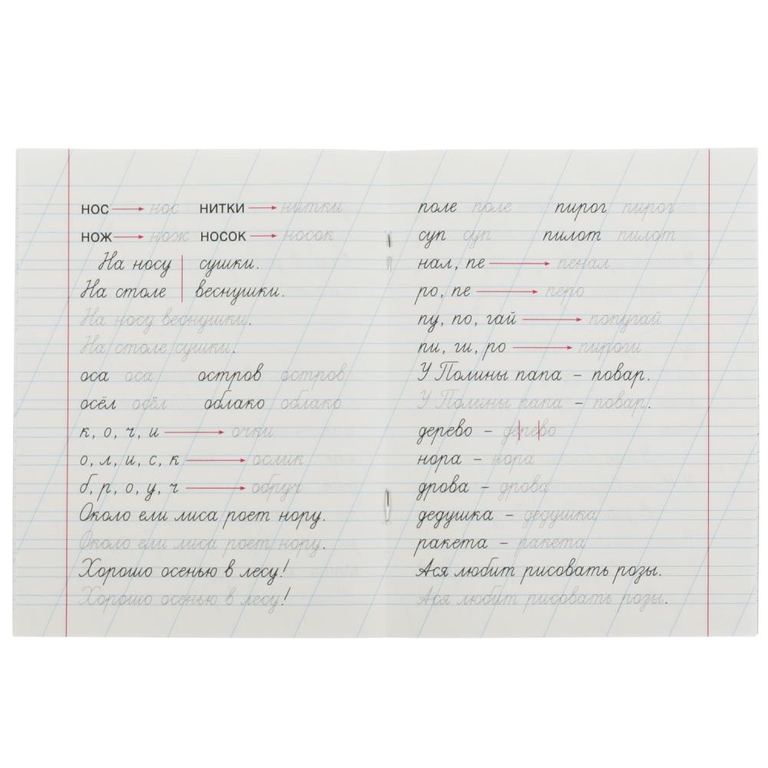 нос → нос нитки → нитки
нож → нож носок → носок
На носу | сушки.
На столе | веснушки.
На носу веснушки.
На столе сушки.
оса оса остров остров
осёл осёл облако облако
к, о, ч, и → очки
о, л, и, с, к → ослик
б, р, о, у, ч → обруч
Около ели лиса роет нору.
Около ели лиса роет нору.
Хорошо осенью в лесу!
Хорошо осенью в лесу!
поле поле пирог пирог
суп суп пилот пилот
нал, пе → пенал
ро, пе → перо
пу, по, гай → попугай
пи, ги, ро → пироги
У Полины папа – повар.
У Полины папа – повар.
дерево – де|ре|во
нора – нора
дрова – дрова
дедушка – дедушка
ракета – ракета
Ася любит рисовать розы.
Ася любит рисовать розы.